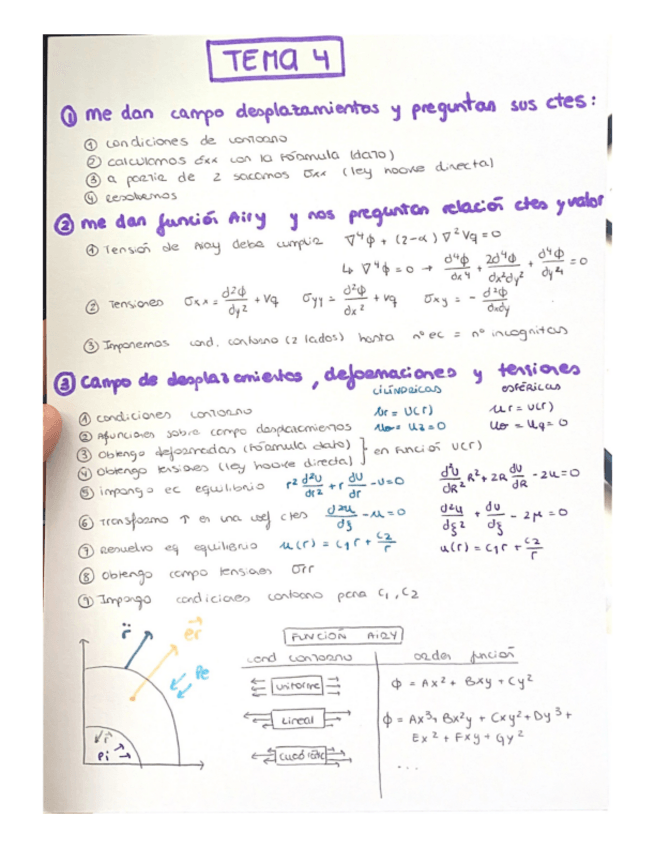 TEMA 4
① me dan campo desplazamientos y preguntan sus ctes:
① condiciones de contorno
② calculamos εxx con la fórmula (dato)
③ a partir de 2 sacamos σxx (ley hooke directa)
④ resolvemos
② me dan función Airy y nos preguntan relación ctes y valor
① Tensión de Airy debe cumplir ∇⁴ϕ + (2-α) ∇²Vq = 0
↳ ∇⁴ϕ = 0 → d⁴ϕ/dx⁴ + 2d⁴ϕ/dx²dy² + d⁴ϕ/dy⁴ = 0
② Tensiones σxx = d²ϕ/dy² + Vq σyy = d²ϕ/dx² + Vq σxy = - d²ϕ/dxdy
③ Imponemos cond. contorno (2 lados) hasta nº ec = nº incognitas
③ Campo de desplazamientos, deformaciones y tensiones
CILÍNDRICAS ESFÉRICAS
① condiciones contorno ur = U(r) ur = U(r)
② Afunciones sobre campo desplazamientos uθ = uz = 0 uθ = uφ = 0
③ Obtengo deformadas (fórmula dato) } en función U(r)
④ Obtengo tensiones (ley hooke directa)
⑤ impongo ec equilibrio r² d²U/dr² + r dU/dr - U = 0 d²U/dR² R² + 2R dU/dR - 2u = 0
⑥ Transformo ↑ en una coef ctes d²u/dξ² - u = 0 d²u/dξ² + du/dξ - 2μ = 0
⑦ Resuelvo eq equilibrio u(r) = C₁r + C₂/r u(r) = C₁r + C₂/r
⑧ Obtengo campo tensiones σrr
⑨ Impongo condiciones contorno para C₁, C₂
r er
Pe
r
Pi
FUNCIÓN AIRY
cond contorno orden función
uniforme ϕ = Ax² + Bxy + Cy²
Lineal ϕ = Ax³ + Bx²y + Cxy² + Dy³ +
Ex² + Fxy + Gy²
...